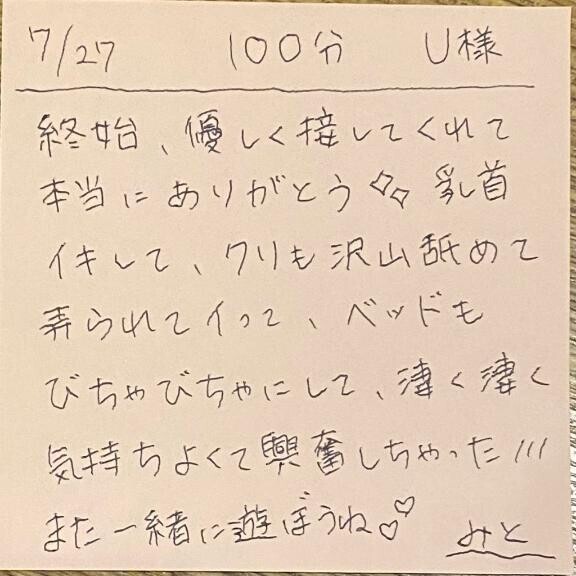 7/27 100分 U様
終始、優しく接してくれて
本当にありがとう✧✧ 乳首
イキして、クリも沢山舐めて
弄られてイって、ベッドも
びちゃびちゃにして、凄く凄く
気持ちよくて興奮しちゃった///
また一緒に遊ぼうね♡♡ みと